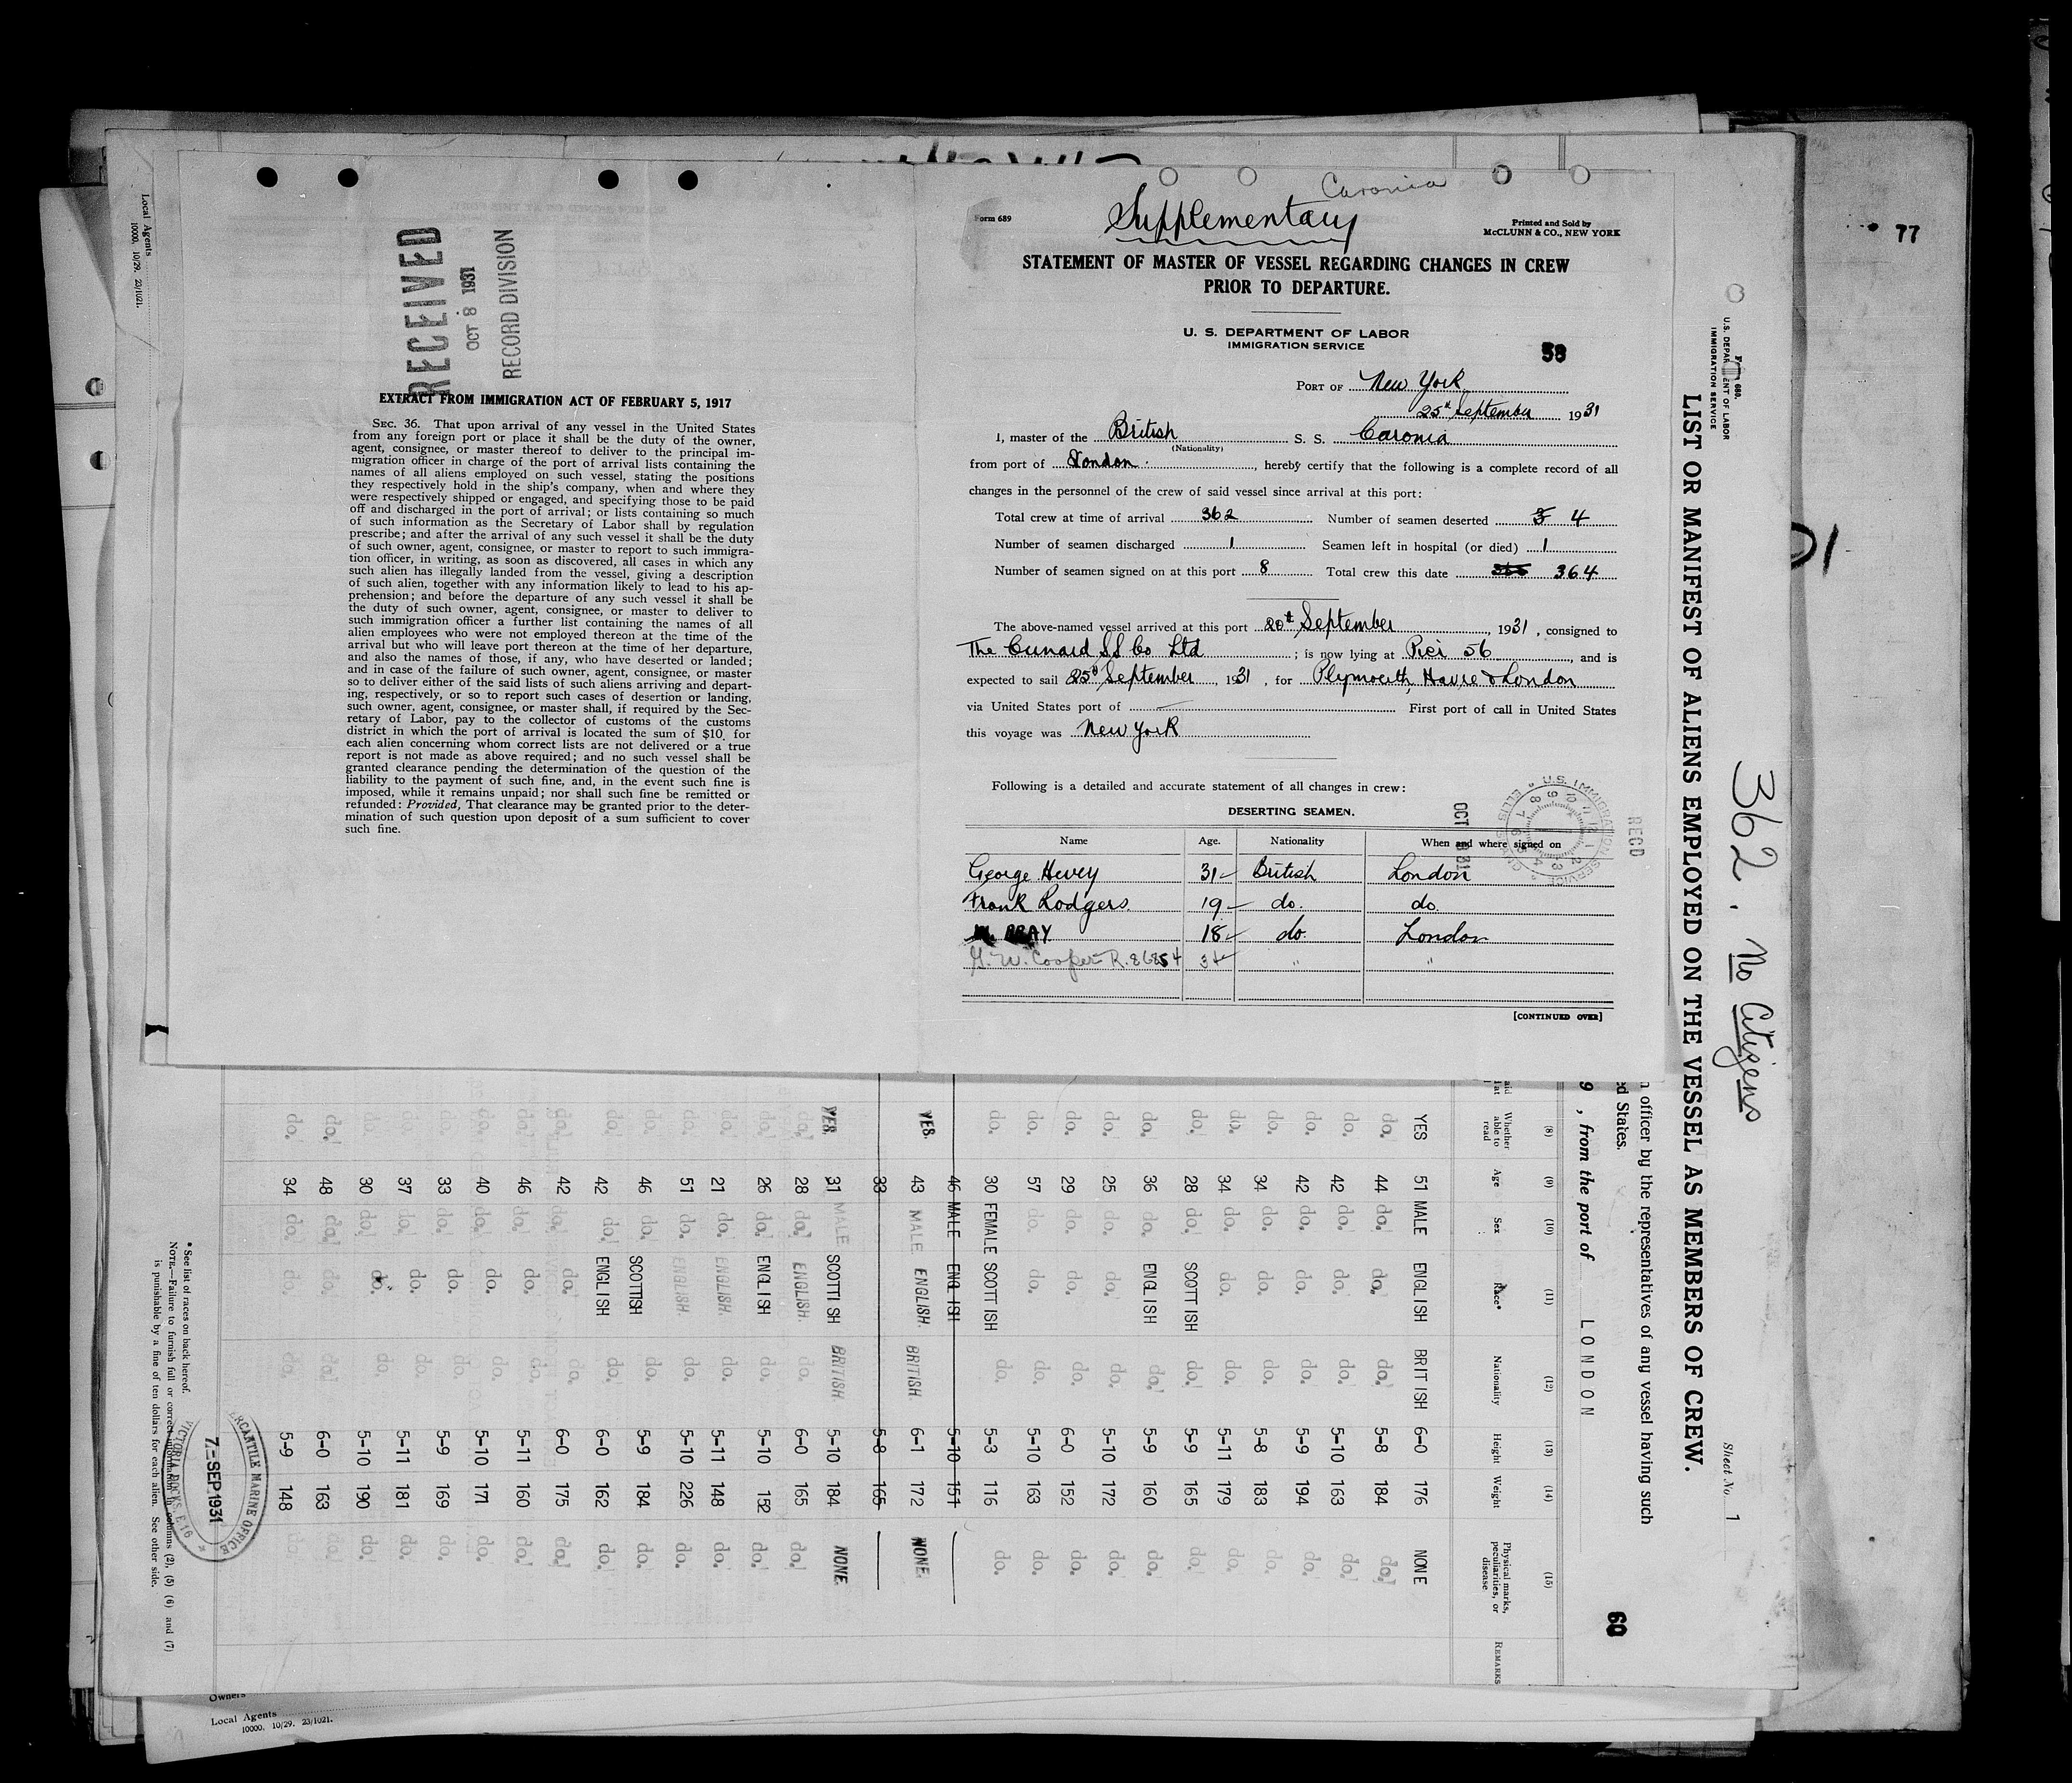 77
Local Agents
10000. 10/29. 23/1021.
RECEIVED
OCT 8 1931
RECORD DIVISION
EXTRACT FROM IMMIGRATION ACT OF FEBRUARY 5, 1917
SEC. 36. That upon arrival of any vessel in the United States
from any foreign port or place it shall be the duty of the owner,
agent, consignee, or master thereof to deliver to the principal im-
migration officer in charge of the port of arrival lists containing the
names of all aliens employed on such vessel, stating the positions
they respectively hold in the ship's company, when and where they
were respectively shipped or engaged, and specifying those to be paid
off and discharged in the port of arrival; or lists containing so much
of such information as the Secretary of Labor shall by regulation
prescribe; and after the arrival of any such vessel it shall be the duty
of such owner, agent, consignee, or master to report to such immigra-
tion officer, in writing, as soon as discovered, all cases in which any
such alien has illegally landed from the vessel, giving a description
of such alien, together with any information likely to lead to his ap-
prehension; and before the departure of any such vessel it shall be
the duty of such owner, agent, consignee, or master to deliver to
such immigration officer a further list containing the names of all
alien employees who were not employed thereon at the time of the
arrival but who will leave port thereon at the time of her departure,
and also the names of those, if any, who have deserted or landed;
and in case of the failure of such owner, agent, consignee, or master
so to deliver either of the said lists of such aliens arriving and depart-
ing, respectively, or so to report such cases of desertion or landing,
such owner, agent, consignee, or master shall, if required by the Sec-
retary of Labor, pay to the collector of customs of the customs
district in which the port of arrival is located the sum of $10. for
each alien concerning whom correct lists are not delivered or a true
report is not made as above required; and no such vessel shall be
granted clearance pending the determination of the question of the
liability to the payment of such fine, and, in the event such fine is
imposed, while it remains unpaid; nor shall such fine be remitted or
refunded: Provided, That clearance may be granted prior to the deter-
mination of such question upon deposit of a sum sufficient to cover
such fine.
Caronia
Form 689
Supplementary
Printed and Sold by
McCLUNN & CO., NEW YORK
STATEMENT OF MASTER OF VESSEL REGARDING CHANGES IN CREW
PRIOR TO DEPARTURE.
U. S. DEPARTMENT OF LABOR
IMMIGRATION SERVICE
58
PORT OF New York
25th September 1931
I, master of the British S. S. Caronia
(Nationality)
from port of London, hereby certify that the following is a complete record of all
changes in the personnel of the crew of said vessel since arrival at this port:
Total crew at time of arrival 362 Number of seamen deserted 3 4
Number of seamen discharged 1 Seamen left in hospital (or died) 1
Number of seamen signed on at this port 8 Total crew this date 365 364
The above-named vessel arrived at this port 20th September, 1931, consigned to
The Cunard SS Co Ltd ; is now lying at Pier 56, and is
expected to sail 25th September, 1931, for Plymouth, Havre & London
via United States port of — First port of call in United States
this voyage was New York
Following is a detailed and accurate statement of all changes in crew:
DESERTING SEAMEN.
Name Age. Nationality When and where signed on
George Hevey 31 British London
Frank Rodgers 19 do. do.
BRAY 18 do. London
G. W. Cooper R. 86854 34 " "
[CONTINUED OVER]
U.S. IMMIGRATION SERVICE ELLIS
OCT 8 31
REC'D
Form 689.
U.S. DEPARTMENT OF LABOR
IMMIGRATION SERVICE
362. No Citizens
LIST OR MANIFEST OF ALIENS EMPLOYED ON THE VESSEL AS MEMBERS OF CREW.
Sheet No. 1
officer by the representatives of any vessel having such
ed States.
9 , from the port of LONDON
60
(8) (9) (10) (11) (12) (13) (14) (15)
Whether able to read Age Sex Race* Nationality Height Weight Physical marks, peculiarities, or disease REMARKS
YES 51 MALE ENGLISH BRITISH 6-0 176 NONE
do. 44 do. do. do. 5-8 184 do.
do. 42 do. do. do. 5-10 163 do.
do. 42 do. do. do. 5-9 194 do.
do. 34 do. do. do. 5-8 183 do.
do. 34 do. do. do. 5-11 179 do.
do. 28 do. SCOTTISH do. 5-9 165 do.
do. 36 do. ENGLISH do. 5-9 160 do.
do. 25 do. do. do. 5-10 172 do.
do. 29 do. do. do. 6-0 152 do.
do. 57 do. do. do. 5-10 163 do.
do. 30 FEMALE SCOTTISH do. 5-3 116 do.
46 MALE ENGLISH 5-10 151
YES. 43 MALE. ENGLISH. BRITISH. 6-1 172 NONE
33 5-8 165
YES. 31 MALE SCOTTISH BRITISH. 5-10 184 NONE.
do. 28 do. ENGLISH. do. 6-0 165 do.
do. 26 do. ENGLISH do. 5-10 152 do.
do. 21 do. ENGLISH. do. 5-11 148 do.
do. 51 do. ENGLISH. do. 5-10 226 do.
do. 46 do. SCOTTISH do. 5-9 184 do.
do. 42 do. ENGLISH do. 6-0 162 do.
do. 42 do. do. do. 6-0 175 do.
do. 46 do. do. do. 5-11 160 do.
do. 40 do. do. do. 5-10 171 do.
do. 33 do. do. do. 5-9 169 do.
do. 37 do. do. do. 5-11 181 do.
do. 30 do. do. do. 5-10 190 do.
do. 48 do. do. do. 6-0 163 do.
do. 34 do. do. do. 5-9 148 do.
* See list of races on back hereof.
NOTE.—Failure to furnish full or correct information in columns (2), (5) (6) and (7)
is punishable by a fine of ten dollars for each alien. See other side.
MERCANTILE MARINE OFFICE
7 - SEP 1931
VICTORIA DOCKS. E 16
Owners
Local Agents
10000. 10/29. 23/1021.